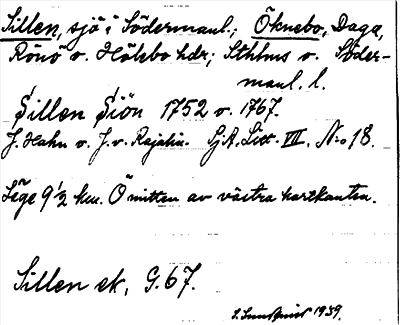 Sillen, sjö i Södermanl.; Öknebo, Daga,
Rönö o. Hölebo hdr; Sthlms o. Söder-
manl. l.
Sillen Siön 1752 o. 1767.
J. Hahn o. J. v. Rajalin. Sj.A. Litt. VII. N:o 18.
Läge 9 1/2 km. Ö mitten av västra kartkanten.
Sillen ek, G. 67.
1939.